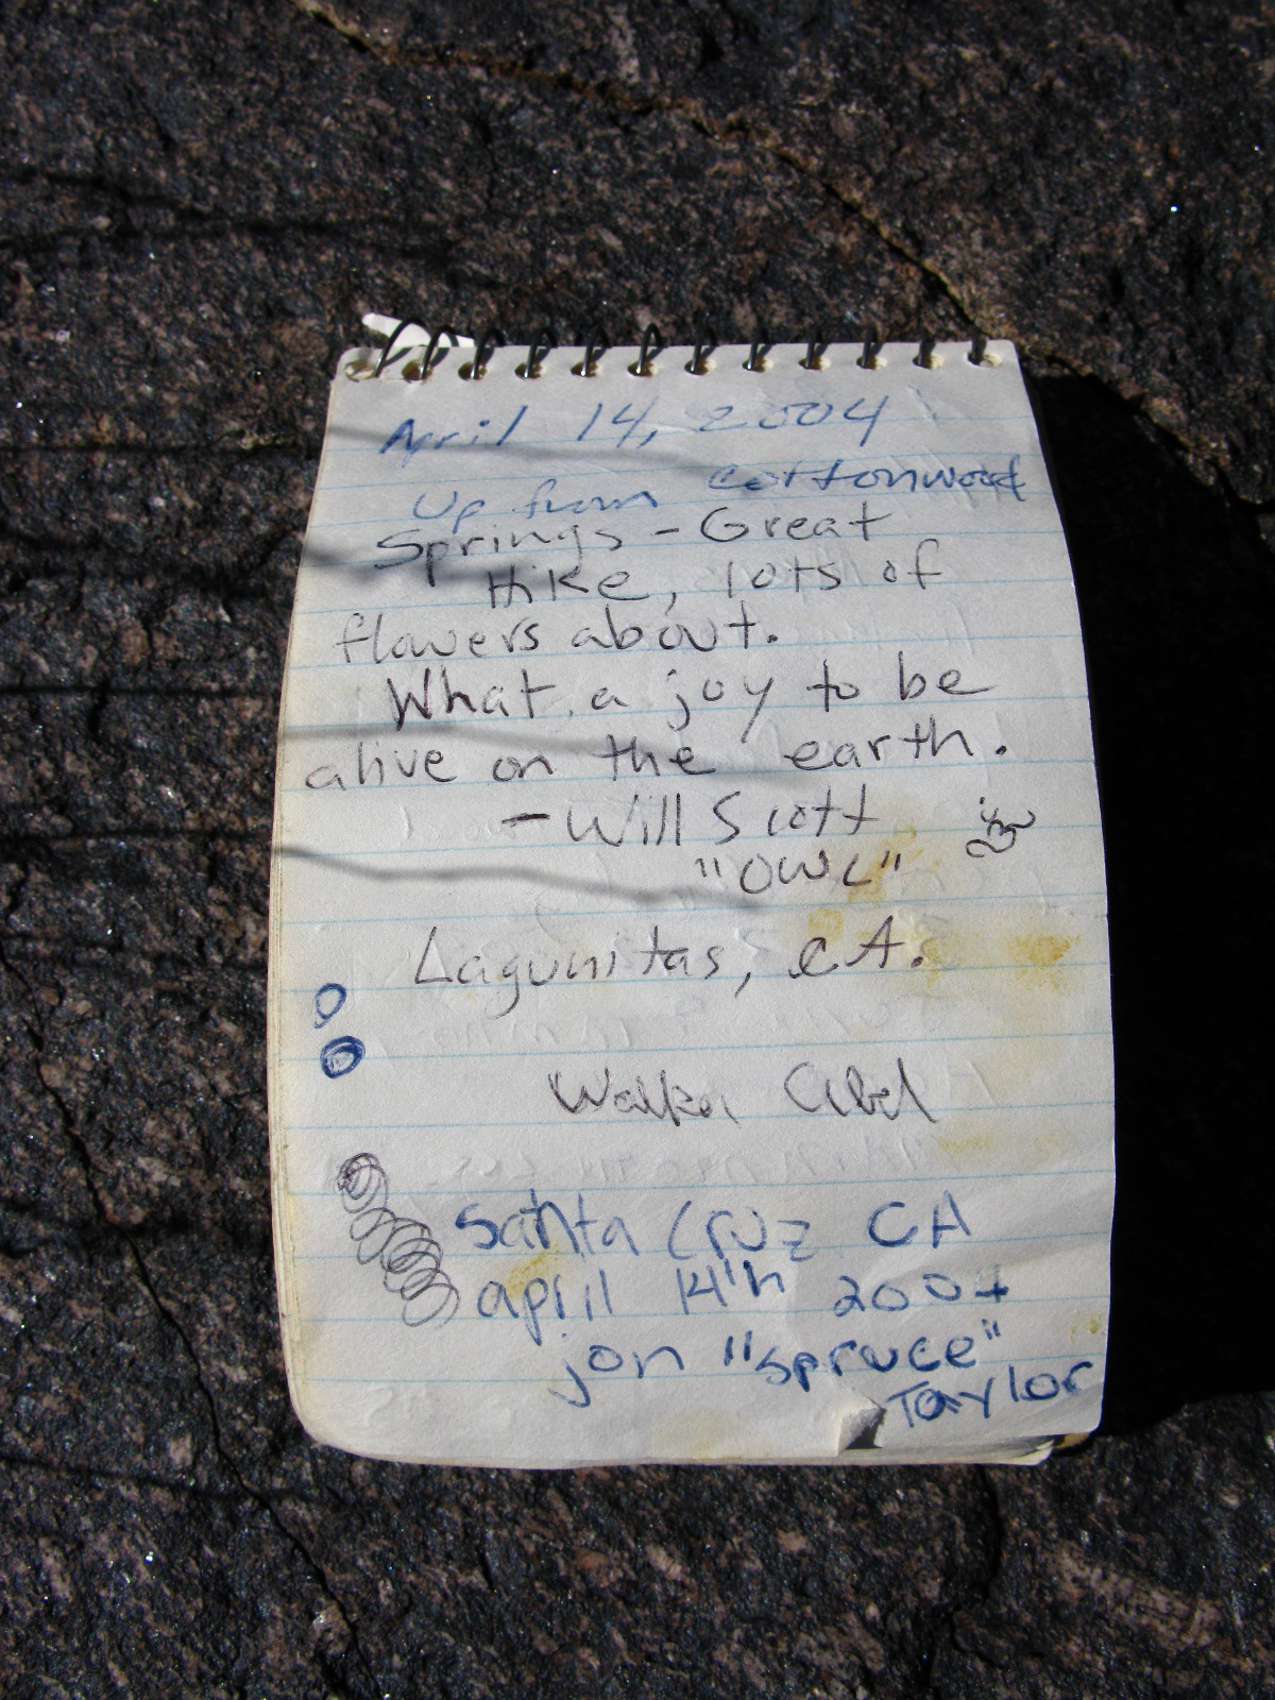 April 14, 2004
Up from cottonwood
Springs - Great
Hike, lots of
flowers about.
What a joy to be
alive on the earth.
- Will Scott
"OWL"
Lagunitas, CA.
Walker Abel
Santa Cruz CA
april 14th 2004
jon "spruce"
Taylor